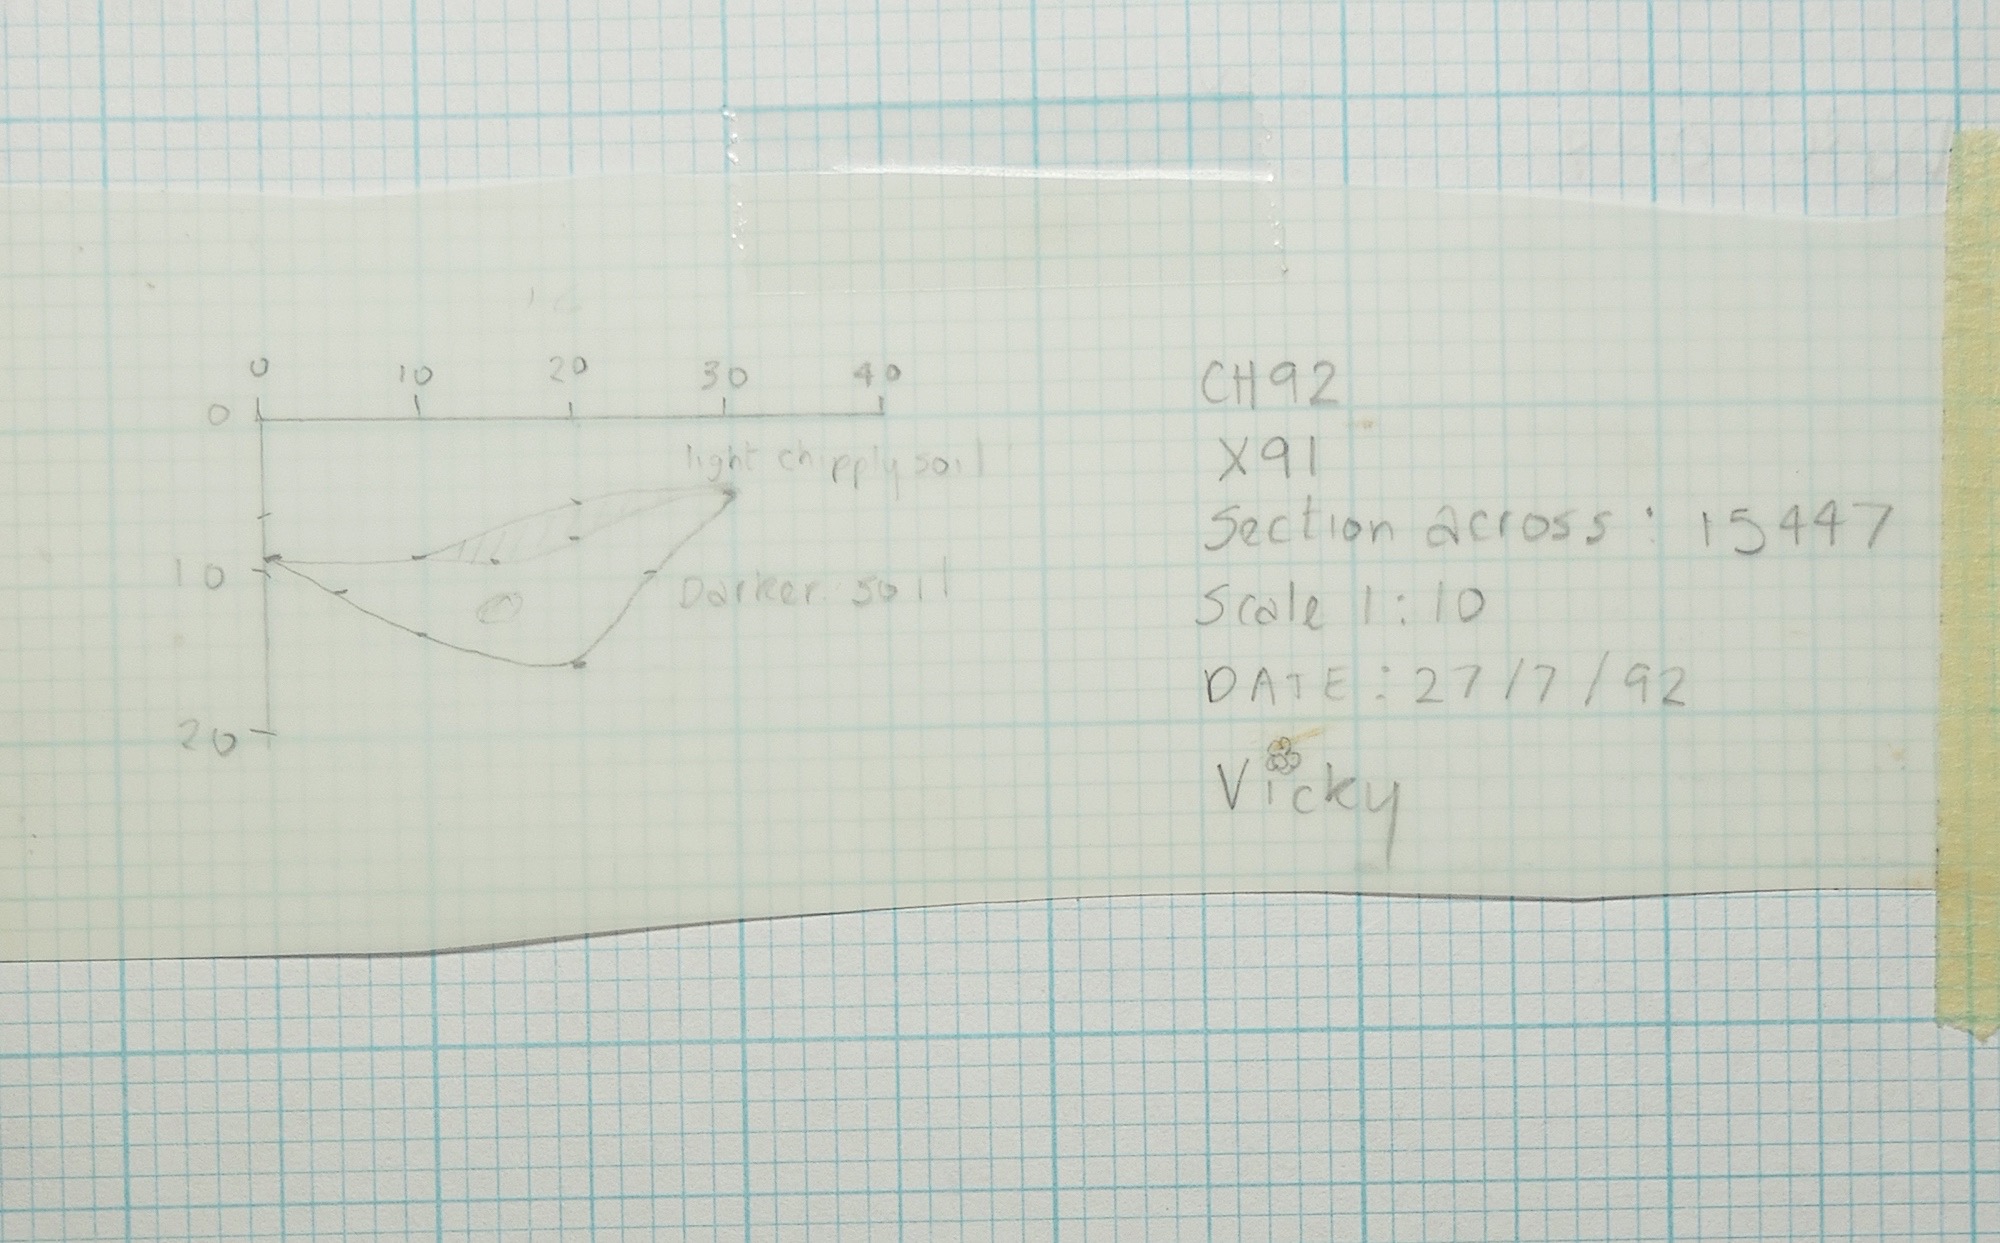 0 10 20 30 40
0
light chipply soil
10
Darker soil
20
CH92
X91
Section across: 15447
Scale 1:10
DATE: 27/7/92
Vicky